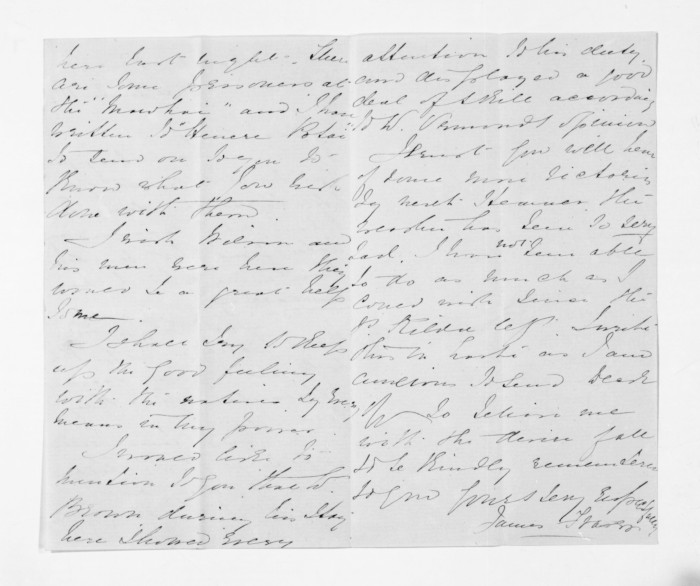 here last night. There
are some prisoners at
the "Mawhai" and I have
written to "Henere Potai"
to send on to you to
know what you wish
done with them.
I wish Wilson and
his men were here they
would be a great help
to me.
I shall try to keep
up the good feeling
with the natives by every
means in my power.
I would like to
mention to you that Dr
Brown during his stay
here showed every
attention to his duty
and displayed a good
deal of skill according
to W. Ormond's opinion
I trust you will hear
of some more victories
by next steamer the
weather has been so very
bad. I have not been able
to do as much as I
could wish since the
St. Kilda left. I write
this in haste as I am
anxious to send
off So believe me
with the desire of all
to be kindly remembered
to you yours very respectfully
James Fraser